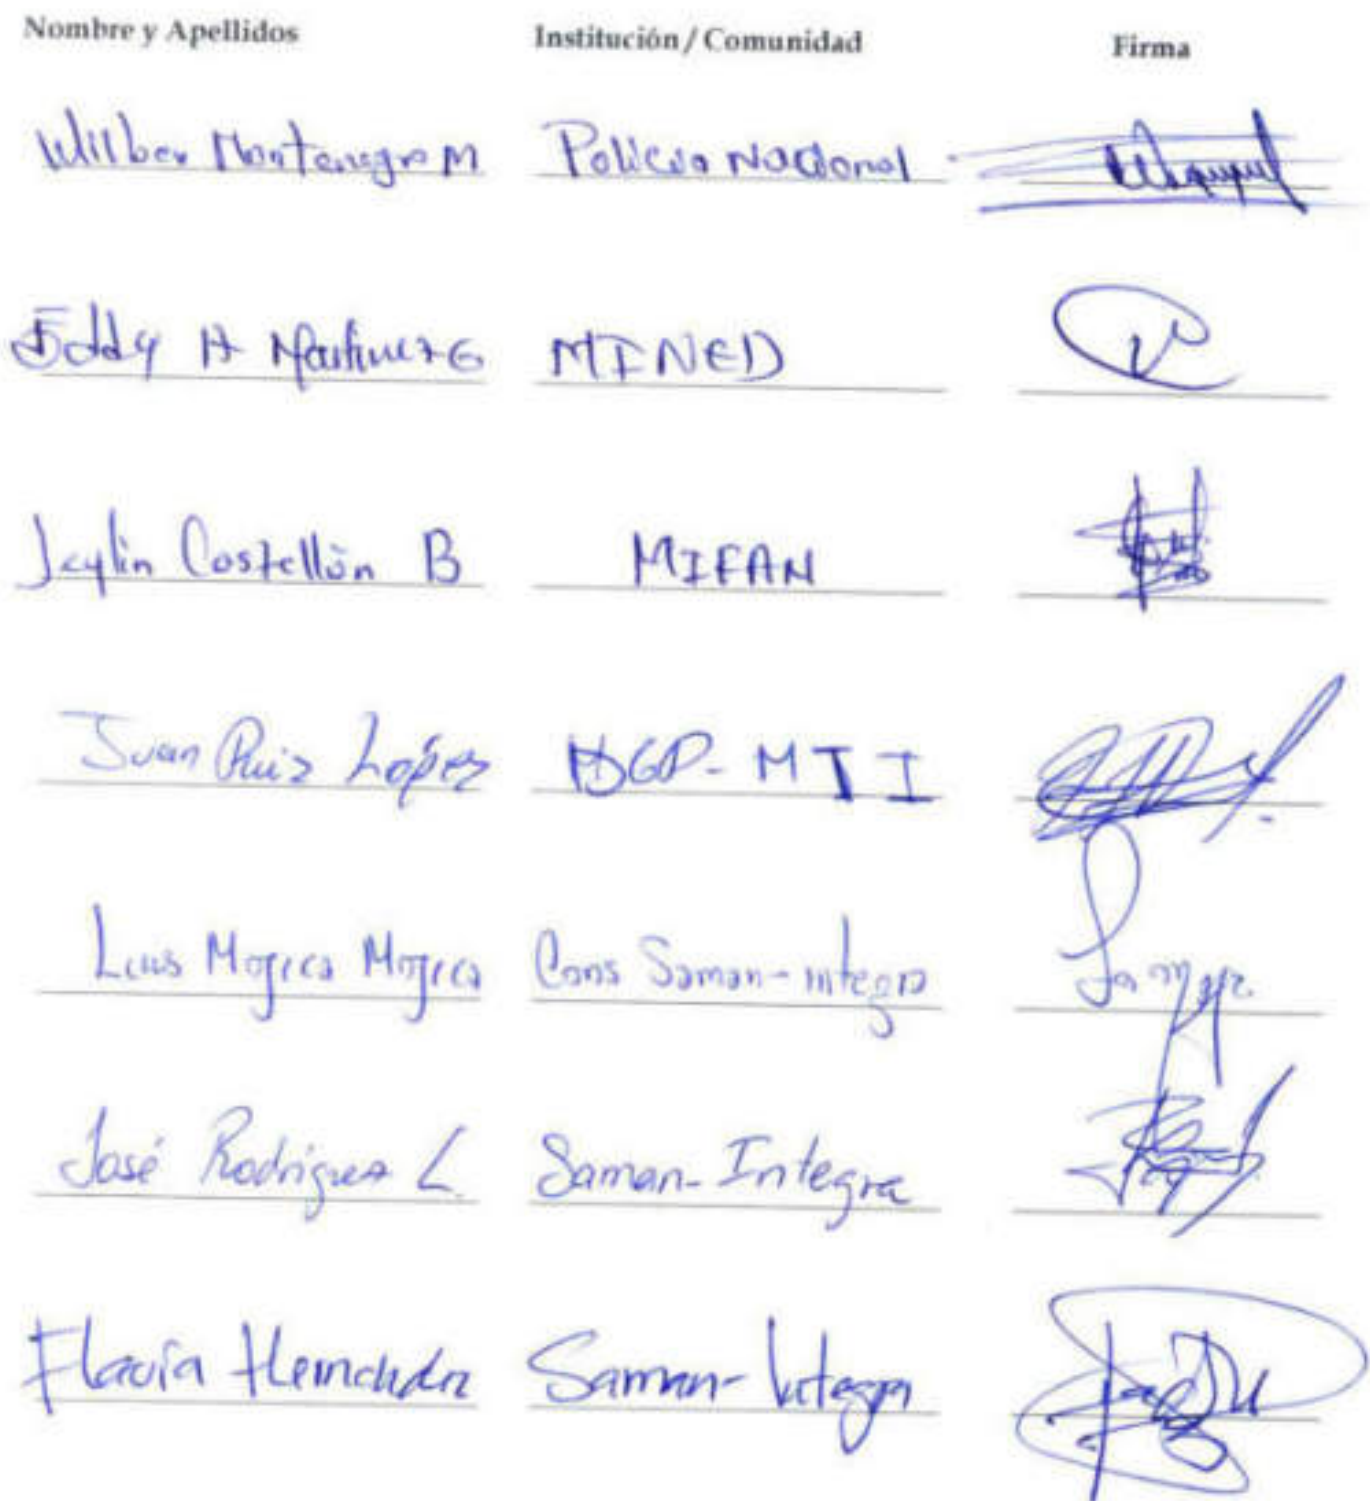 Nombre y Apellidos Institución / Comunidad Firma
Wilber Montenegro M Policia Nacional
Eddy A Martinez G MINED
Jeylin Castellón B MIFAN
Juan Ruiz López DGP-MTI
Luis Mojica Mojica Cons Saman-integra
José Rodriguez L. Saman-Integra
Flavia Hernández Saman-Integra